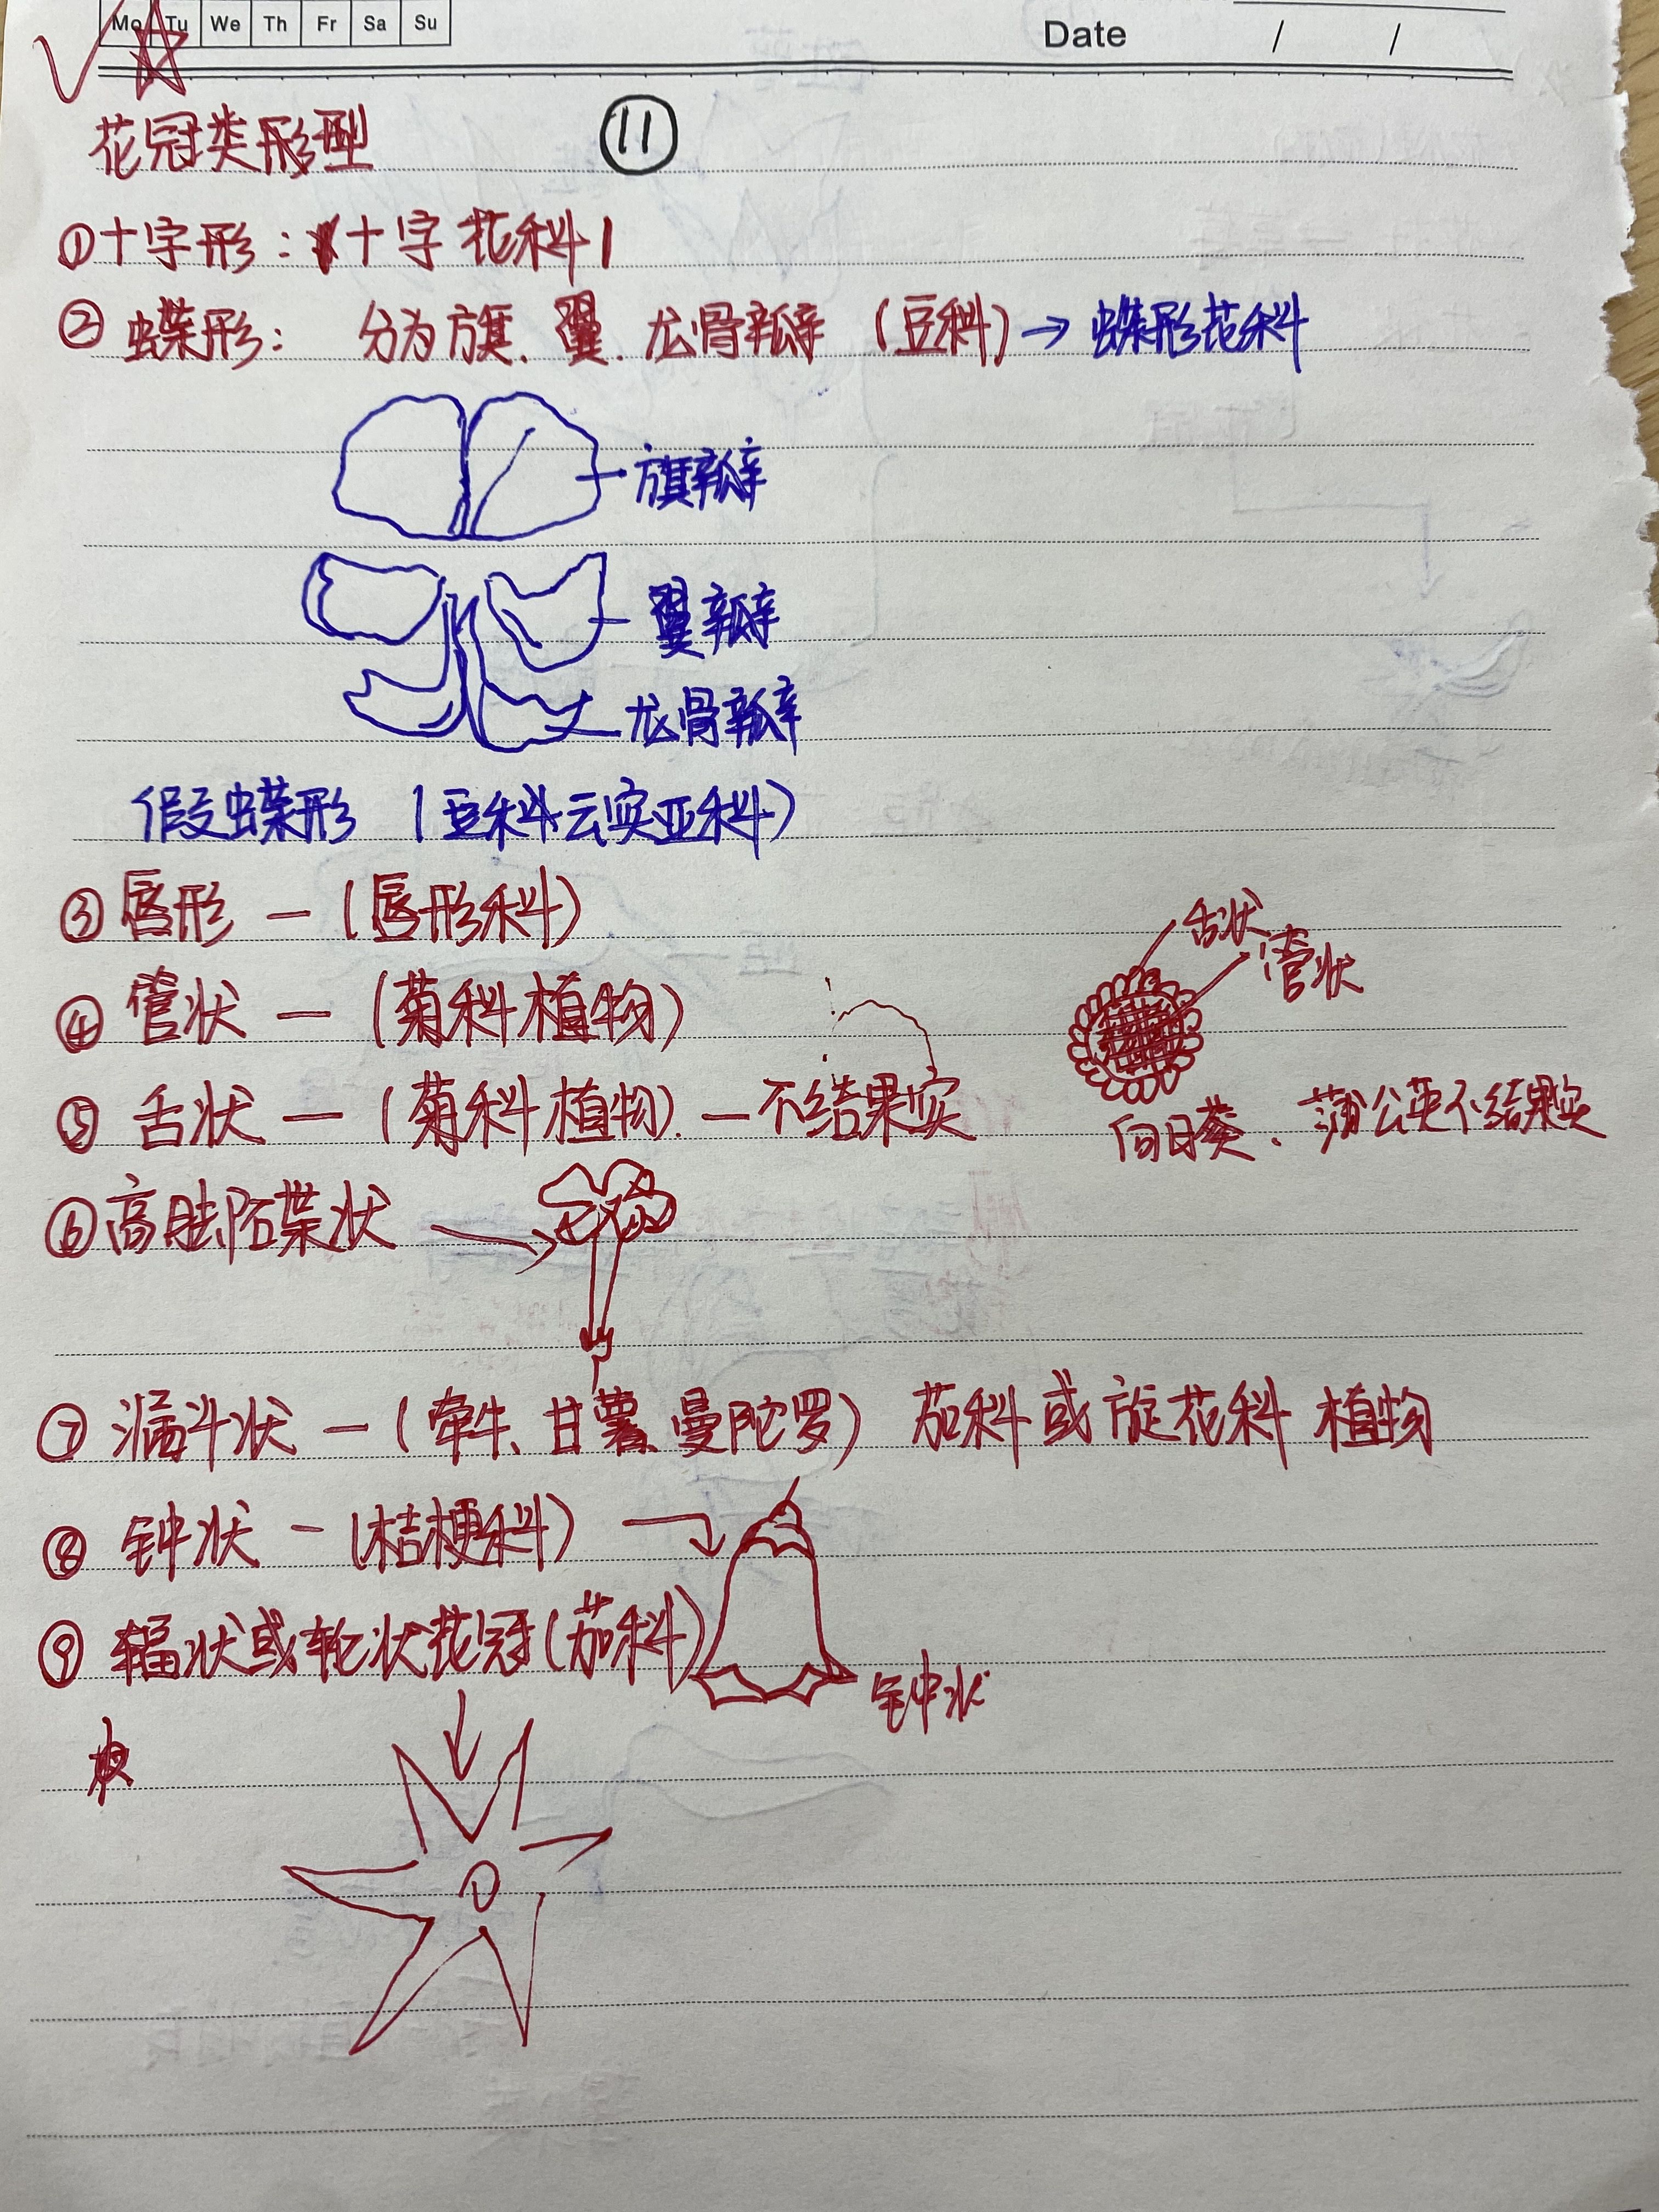 Mo Tu We Th Fr Sa Su
Date / /
花冠类形型 ⑪
①十字形：(十字花科)
②蝶形： 分为旗、翼、龙骨瓣 (豆科)→蝶形花科
旗瓣
翼瓣
龙骨瓣
假蝶形 (豆科云实亚科)
③唇形 — (唇形科)
舌状
管状
④管状 — (菊科植物)
⑤舌状 — (菊科植物) — 不结果实
向日葵、蒲公英不结果实
⑥高脚碟状
⑦漏斗状 — (牵牛、甘薯、曼陀罗) 茄科或旋花科植物
⑧钟状 — (桔梗科)
⑨辐状或轮状花冠(茄科)
钟状